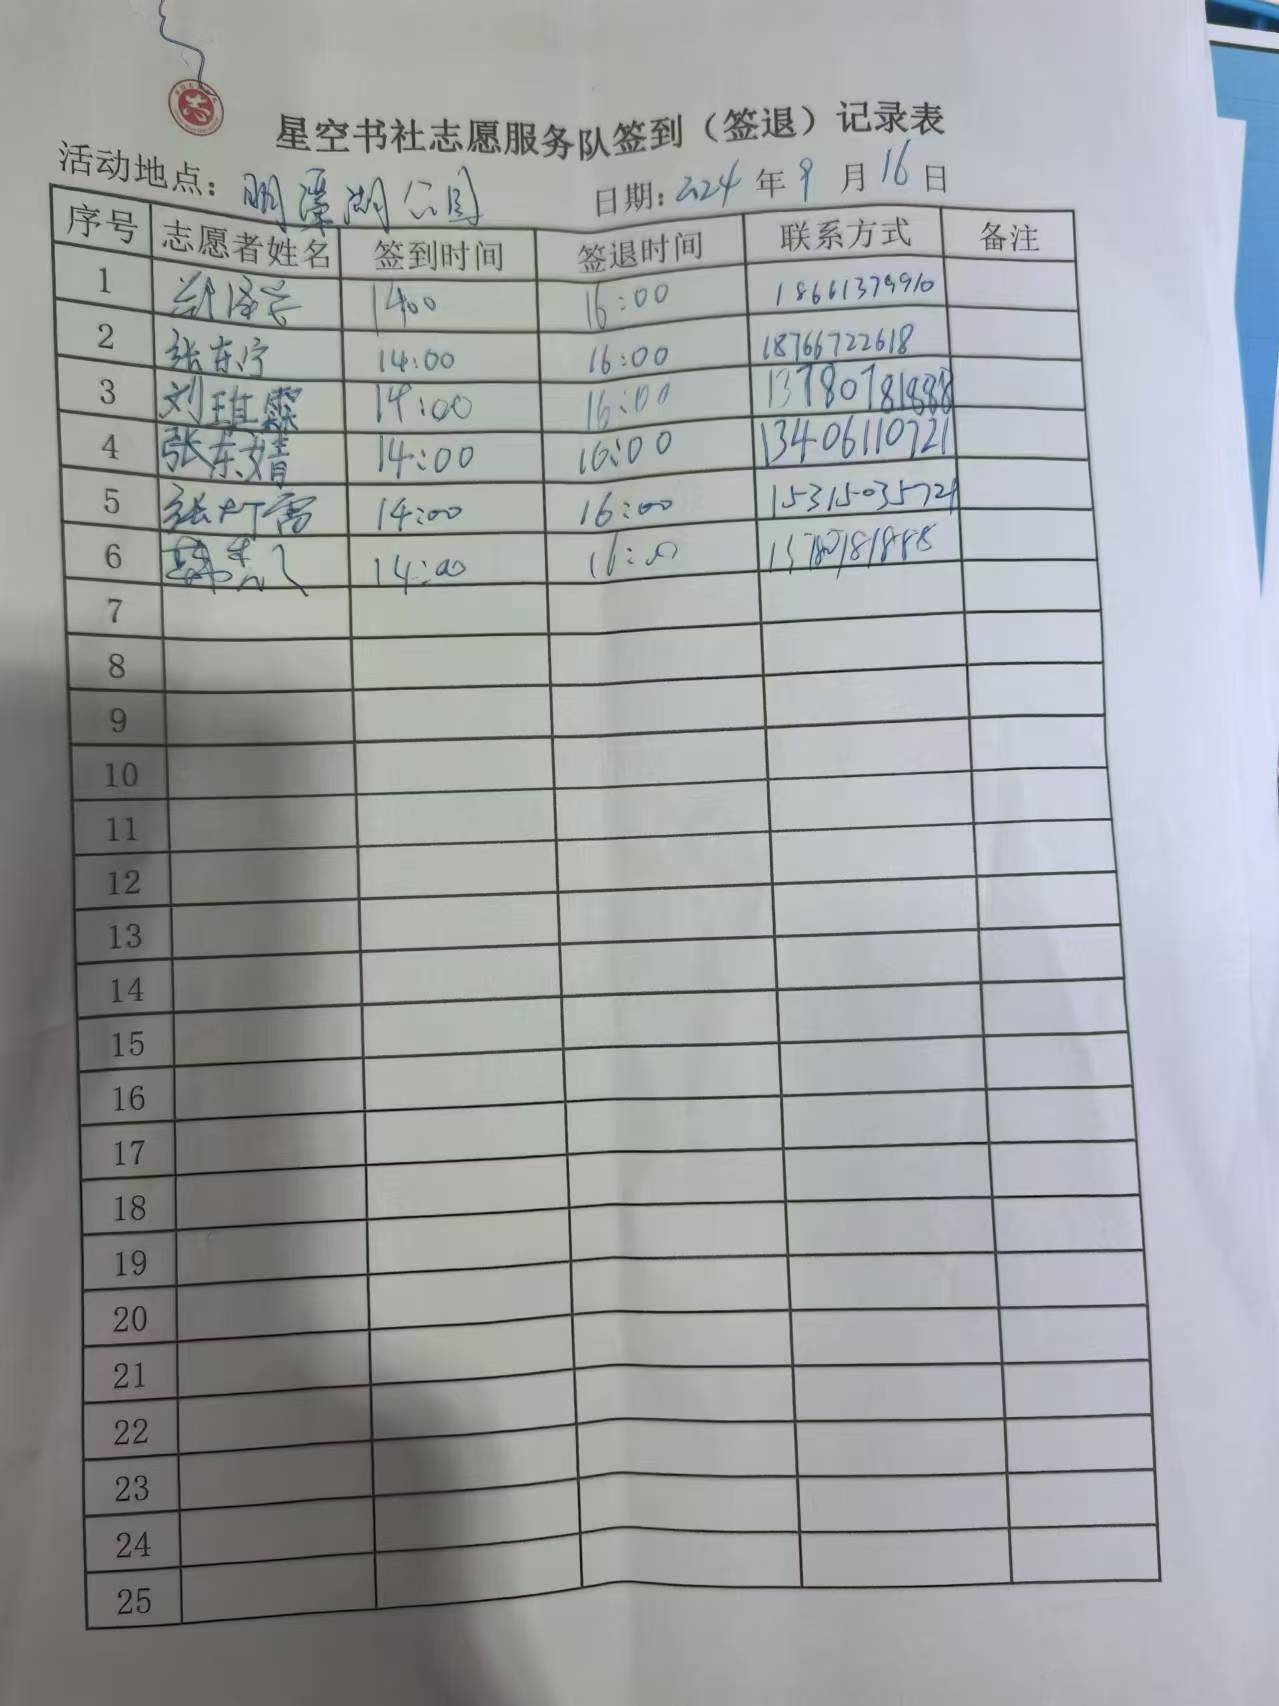 星空书社志愿服务队签到（签退）记录表
活动地点：明潭湖公园 日期：2024年9月16日
序号 志愿者姓名 签到时间 签退时间 联系方式 备注
1 14:00 16:00 18661379910
2 张东宁 14:00 16:00 18766722618
3 刘琪霖 14:00 16:00 13780781888
4 张东婧 14:00 16:00 13406110721
5 14:00 16:00 15315035721
6 14:00 16:00
7
8
9
10
11
12
13
14
15
16
17
18
19
20
21
22
23
24
25